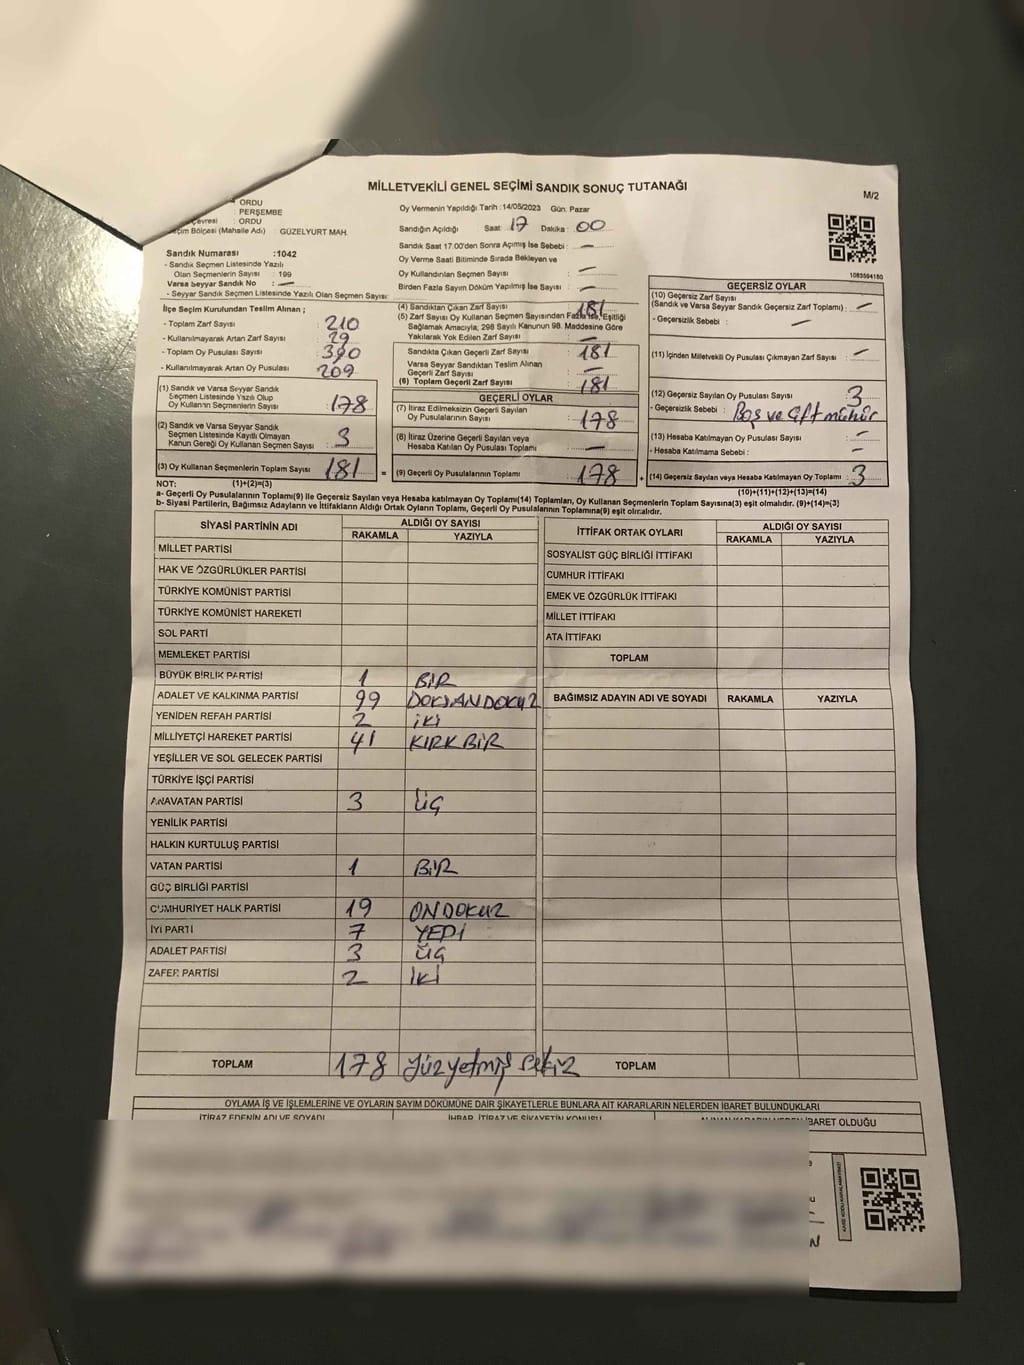 MİLLETVEKİLİ GENEL SEÇİMİ SANDIK SONUÇ TUTANAĞI
M/2
ORDU
: PERŞEMBE
: ORDU
Bölgesi (Mahalle Adı) : GÜZELYURT MAH.
Oy Vermenin Yapıldığı Tarih : 14/05/2023 Gün: Pazar
Sandığın Açıldığı Saat: 17 Dakika : 00
Sandık Saat 17.00'den Sonra Açılmış İse Sebebi : —
Oy Verme Saati Bitiminde Sırada Bekleyen ve
Oy Kullandırılan Seçmen Sayısı : —
Birden Fazla Sayım Döküm Yapılmış İse Sayısı : —
1083594180
Sandık Numarası :1042
- Sandık Seçmen Listesinde Yazılı
Olan Seçmenlerin Sayısı : 199
Varsa Seyyar Sandık No : —
- Seyyar Sandık Seçmen Listesinde Yazılı Olan Seçmen Sayısı:
İlçe Seçim Kurulundan Teslim Alınan ;
- Toplam Zarf Sayısı : 210
- Kullanılmayarak Artan Zarf Sayısı : 29
- Toplam Oy Pusulası Sayısı : 390
- Kullanılmayarak Artan Oy Pusulası : 209
(1) Sandık ve Varsa Seyyar Sandık
Seçmen Listesinde Yazılı Olup
Oy Kullanan Seçmenlerin Sayısı : 178
(2) Sandık ve Varsa Seyyar Sandık
Seçmen Listesinde Kayıtlı Olmayan
Kanun Gereği Oy Kullanan Seçmen Sayısı : 3
(3) Oy Kullanan Seçmenlerin Toplam Sayısı : 181
(4) Sandıktan Çıkan Zarf Sayısı : 181
(5) Zarf Sayısı Oy Kullanan Seçmen Sayısından Fazla İse, Eşitliği
Sağlamak Amacıyla, 298 Sayılı Kanunun 98. Maddesine Göre
Yakılarak Yok Edilen Zarf Sayısı : —
Sandıkta Çıkan Geçerli Zarf Sayısı : 181
Varsa Seyyar Sandıktan Teslim Alınan
Geçerli Zarf Sayısı : —
(6) Toplam Geçerli Zarf Sayısı : 181
GEÇERLİ OYLAR
(7) İtiraz Edilmeksizin Geçerli Sayılan
Oy Pusulalarının Sayısı : 178
(8) İtiraz Üzerine Geçerli Sayılan veya
Hesaba Katılan Oy Pusulası Toplamı : —
= (9) Geçerli Oy Pusulalarının Toplamı : 178 +
GEÇERSİZ OYLAR
(10) Geçersiz Zarf Sayısı
(Sandık ve Varsa Seyyar Sandık Geçersiz Zarf Toplamı) : —
- Geçersizlik Sebebi : —
(11) İçinden Milletvekili Oy Pusulası Çıkmayan Zarf Sayısı : —
(12) Geçersiz Sayılan Oy Pusulası Sayısı : 3
- Geçersizlik Sebebi : Boş ve çift mühür
(13) Hesaba Katılmayan Oy Pusulası Sayısı : —
- Hesaba Katılmama Sebebi : —
(14) Geçersiz Sayılan veya Hesaba Katılmayan Oy Toplamı : 3
NOT: (1)+(2)=(3)
(10)+(11)+(12)+(13)=(14)
a- Geçerli Oy Pusulalarının Toplamı(9) ile Geçersiz Sayılan veya Hesaba katılmayan Oy Toplamı(14) Toplamları, Oy Kullanan Seçmenlerin Toplam Sayısına(3) eşit olmalıdır. (9)+(14)=(3)
b- Siyasi Partilerin, Bağımsız Adayların ve İttifakların Aldığı Ortak Oyların Toplamı, Geçerli Oy Pusulalarının Toplamına(9) eşit olmalıdır.
SİYASİ PARTİNİN ADI ALDIĞI OY SAYISI
RAKAMLA YAZIYLA
MİLLET PARTİSİ
HAK VE ÖZGÜRLÜKLER PARTİSİ
TÜRKİYE KOMÜNİST PARTİSİ
TÜRKİYE KOMÜNİST HAREKETİ
SOL PARTİ
MEMLEKET PARTİSİ
BÜYÜK BİRLİK PARTİSİ 1 BİR
ADALET VE KALKINMA PARTİSİ 99 DOKSANDOKUZ
YENİDEN REFAH PARTİSİ 2 İKİ
MİLLİYETÇİ HAREKET PARTİSİ 41 KIRKBİR
YEŞİLLER VE SOL GELECEK PARTİSİ
TÜRKİYE İŞÇİ PARTİSİ
ANAVATAN PARTİSİ 3 ÜÇ
YENİLİK PARTİSİ
HALKIN KURTULUŞ PARTİSİ
VATAN PARTİSİ 1 BİR
GÜÇ BİRLİĞİ PARTİSİ
CUMHURİYET HALK PARTİSİ 19 ONDOKUZ
İYİ PARTİ 7 YEDİ
ADALET PARTİSİ 3 ÜÇ
ZAFER PARTİSİ 2 İKİ
TOPLAM 178 Yüzyetmiş sekiz
İTTİFAK ORTAK OYLARI ALDIĞI OY SAYISI
RAKAMLA YAZIYLA
SOSYALİST GÜÇ BİRLİĞİ İTTİFAKI
CUMHUR İTTİFAKI
EMEK VE ÖZGÜRLÜK İTTİFAKI
MİLLET İTTİFAKI
ATA İTTİFAKI
TOPLAM
BAĞIMSIZ ADAYIN ADI VE SOYADI RAKAMLA YAZIYLA
TOPLAM
OYLAMA İŞ VE İŞLEMLERİNE VE OYLARIN SAYIM DÖKÜMÜNE DAİR ŞİKAYETLERLE BUNLARA AİT KARARLARIN NELERDEN İBARET BULUNDUKLARI
İTİRAZ EDENİN ADI VE SOYADI İHBAR, İTİRAZ VE ŞİKAYETİN KONUSU İBARET OLDUĞU